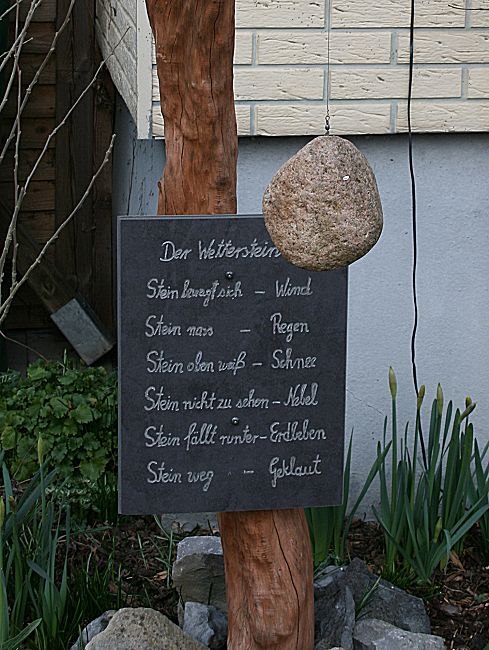 Der Wetterstein
Stein bewegt sich - Wind
Stein nass - Regen
Stein oben weiß - Schnee
Stein nicht zu sehen - Nebel
Stein fällt runter - Erdbeben
Stein weg - Geklaut